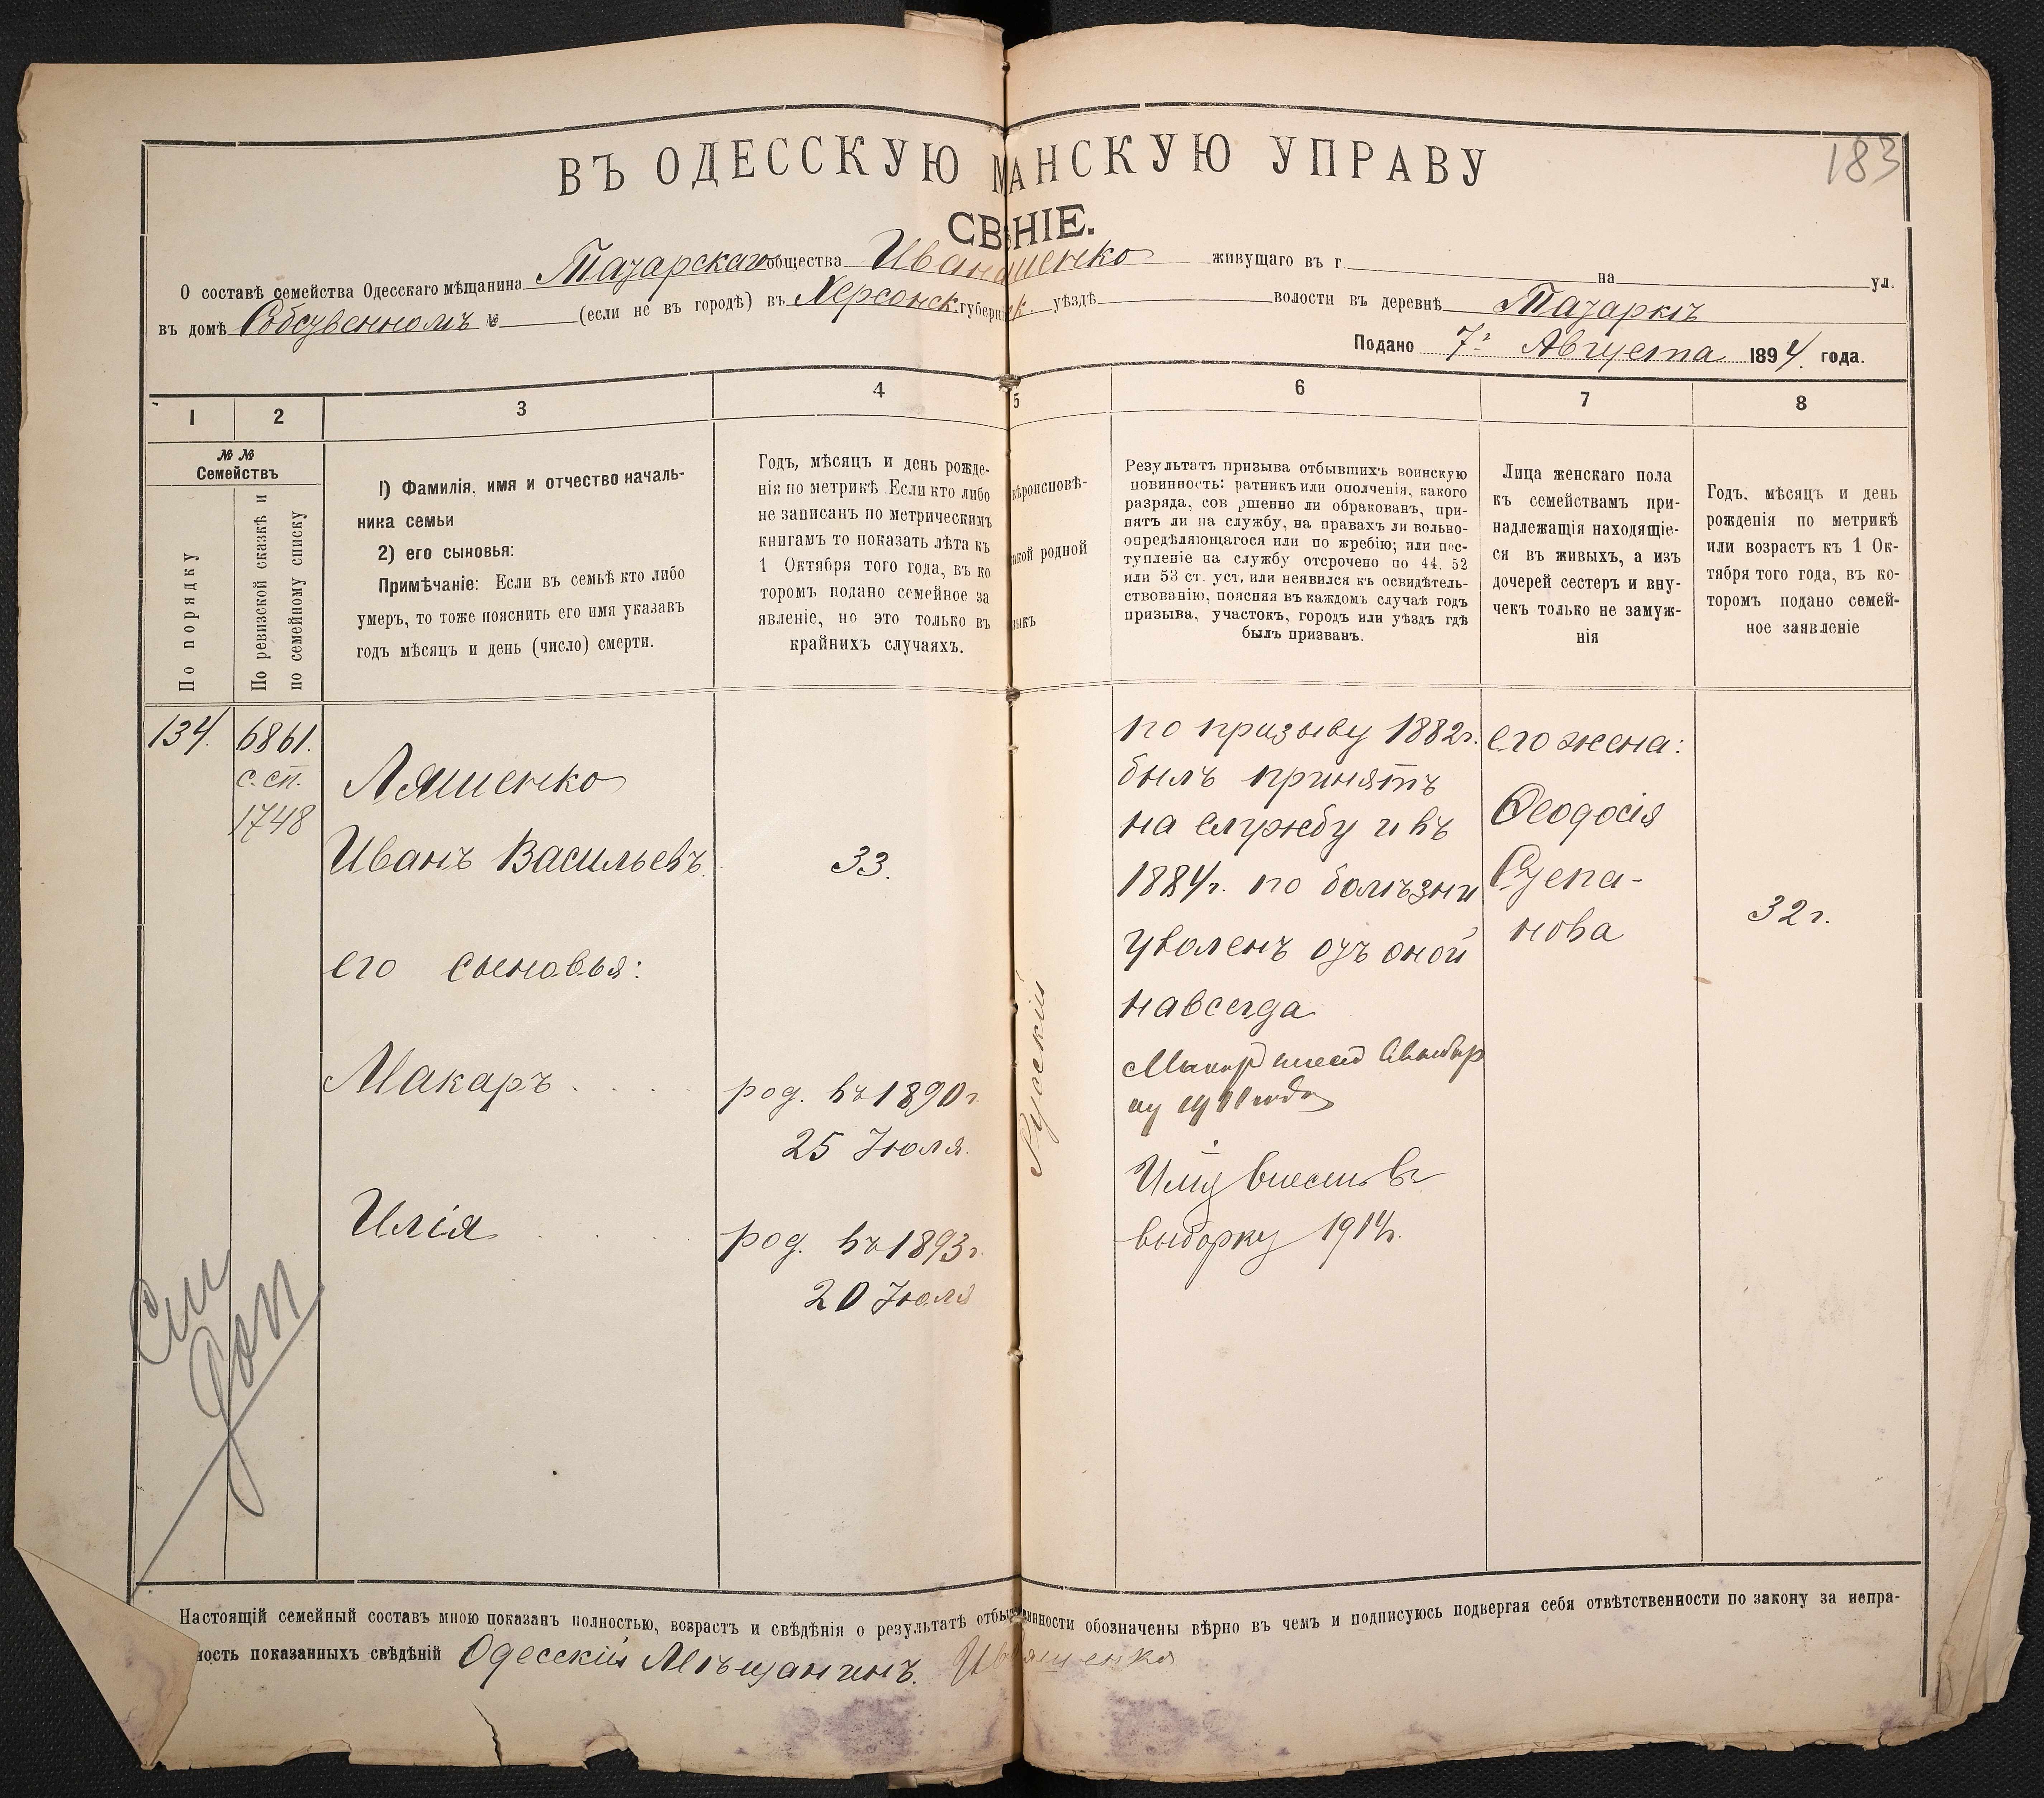 183
ВЪ ОДЕССКУЮ М АНСКУЮ УПРАВУ
СВ НІЕ.
О составѣ семейства Одесскаго мѣщанина Тазарскаго общества Иван шенко живущаго въ г на ул.
въ домѣ Собственномъ № (если не въ городѣ) въ Херсонск. губерні уѣздѣ волости въ деревнѣ Тазаркѣ
Подано 7го Августа 1894. года.
1 2 3 4 5 6 7 8
№№
Семействъ
По порядку
По ревизской сказкѣ и
по семейному списку
1) Фамилія, имя и отчество началь-
ника семьи
2) его сыновья:
Примѣчаніе: Если въ семьѣ кто либо
умеръ, то тоже пояснить его имя указавъ
годъ мѣсяцъ и день (число) смерти.
Годъ, мѣсяцъ и день рожде-
нія по метрикѣ Если кто либо
не записанъ по метрическимъ
книгамъ то показать лѣта къ
1 Октября того года, въ ко
торомъ подано семейное за
явленіе, но это только въ
крайнихъ случаяхъ.
вѣроисповѣ-
акой родной
зыкъ
Результатъ призыва отбывшихъ воинскую
повинность: ратникъ или ополченія, какого
разряда, сов ршенно ли обракованъ, при-
нятъ ли на службу, на правахъ ли вольно-
опредѣляющагося или по жребію; или пос-
тупленіе на службу отсрочено по 44. 52
или 53 ст. уст. или неявился къ освидѣтель-
ствованію, поясняя въ каждомъ случаѣ годъ
призыва, участокъ, городъ или уѣздъ гдѣ
былъ призванъ.
Лица женскаго пола
къ семействамъ при-
надлежащія находящіе-
ся въ живыхъ, а изъ
дочерей сестеръ и вну-
чекъ только не замуж-
нія
Годъ, мѣсяцъ и день
рожденія по метрикѣ
или возрастъ къ 1 Ок-
тября того года, въ ко-
торомъ подано семей-
ное заявленіе
134.
6861.
с.сп.
1748
Ляшенко
Иванъ Васильевъ.
его сыновья:
Макаръ
Илія
33.
род. въ 1890 г
25 Іюля.
род. въ 1893 г.
20 Іюля
Русскій
по призыву 1882г.
былъ принятъ
на службу и въ
1884г. по болѣзни
уволенъ отъ оной
навсегда
Макар
Илія внесенъ в
выборку 1914г.
его жена:
Ѳеодосія
Степа-
нова
32 г.
См
доп
Настоящій семейный составъ мною показанъ полностью, возрастъ и свѣдѣнія о результатѣ отбы инности обозначены вѣрно въ чемъ и подписуюсь подвергая себя отвѣтственности по закону за непра-
ность показанныхъ свѣдѣній Одесскій Мѣщанинъ. Ив ященко